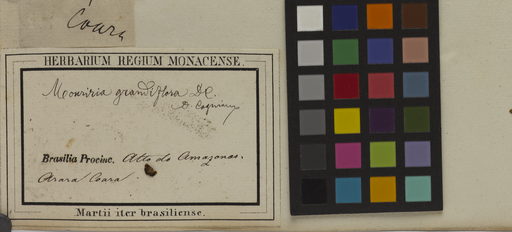 Coara
HERBARIUM REGIUM MONACENSE.
Mouriria grandiflora DC.
D. Cogniaux
Brasilia Provinc. Alto do Amazonas.
Arara Coara.
Martii iter brasiliense.